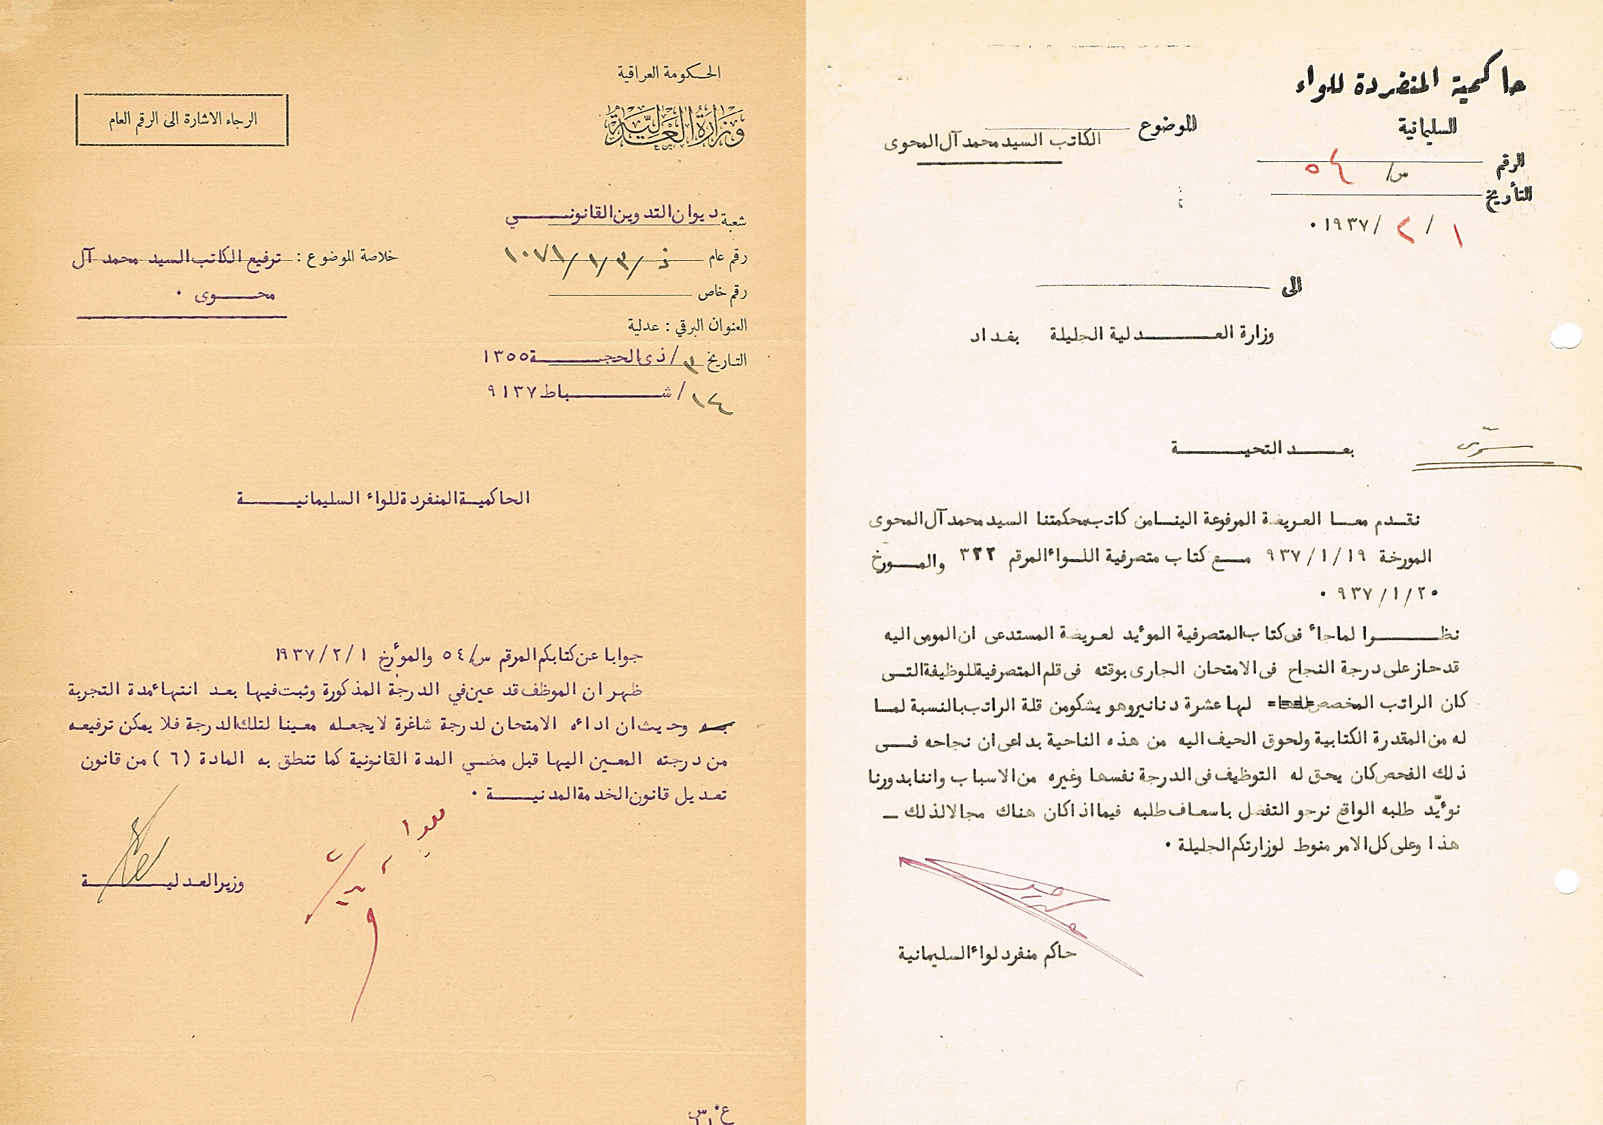 حاكمية المنفردة للواء
السليمانية
الرقم س/ ٥٤
التأريخ
١ / ٢ / ١٩٣٧ ٠
الموضوع
الكاتب السيد محمد آل المحوى
الى
وزارة العدلية الجليلة بغداد
سرى
بعد التحية
نقدم معا العريضة المرفوعة الينا من كاتب محكمتنا السيد محمد آل المحوى
المورخة ١٩ / ١ / ٩٣٧ مع كتاب متصرفية اللواء المرقم ٣٢٢ والمورخ
٢٠ / ١ / ٩٣٧ ٠
نظرا لما جاء فى كتاب المتصرفية المؤيد لعريضة المستدعى ان المومى اليه
قد حاز على درجة النجاح فى الامتحان الجارى بوقته فى قلم المتصرفية للوظيفة التى
كان الراتب المخصص لها عشرة دنانير وهو يشكو من قلة الراتب بالنسبة لما
له من المقدرة الكتابية ولحوق الحيف اليه من هذه الناحية بداعى ان نجاحه فى
ذلك الفحص كان يحق له التوظيف فى الدرجة نفسها وغيره من الاسباب واننا بدورنا
نؤيّد طلبه الواقع نرجو التفضل باسعاف طلبه فيما اذا كان هناك مجالا لذلك ــ
هذا وعلى كل الامر منوط لوزارتكم الجليلة ٠
حاكم منفرد لواء السليمانية
الحكومة العراقية
وزارة العدلية
الرجاء الاشارة الى الرقم العام
شعبة ديوان التدوين القانونى
رقم عام ذ/٣/١/١٠٧١
رقم خاص
العنوان البرقي : عدلية
التاريخ ٣/ ذى الحجة ١٣٥٥
١٤/ شباط ٩١٣٧
خلاصة الموضوع : ترفيع الكاتب السيد محمد آل
محوى ٠
الحاكمية المنفردة للواء السليمانية
جوابا عن كتابكم المرقم س/٥٤ والمؤرخ ١ /٢/ ١٩٣٧
ظهر ان الموظف قد عين في الدرجة المذكورة وثبت فيها بعد انتهاء مدة التجربة
وحيث ان اداءه الامتحان لدرجة شاغرة لا يجعله معينا لتلك الدرجة فلا يمكن ترفيعه
من درجته المعين اليها قبل مضي المدة القانونية كما تنطق به المادة (٦) من قانون
تعديل قانون الخدمة المدنية ٠
وزير العدلية
ع٠س